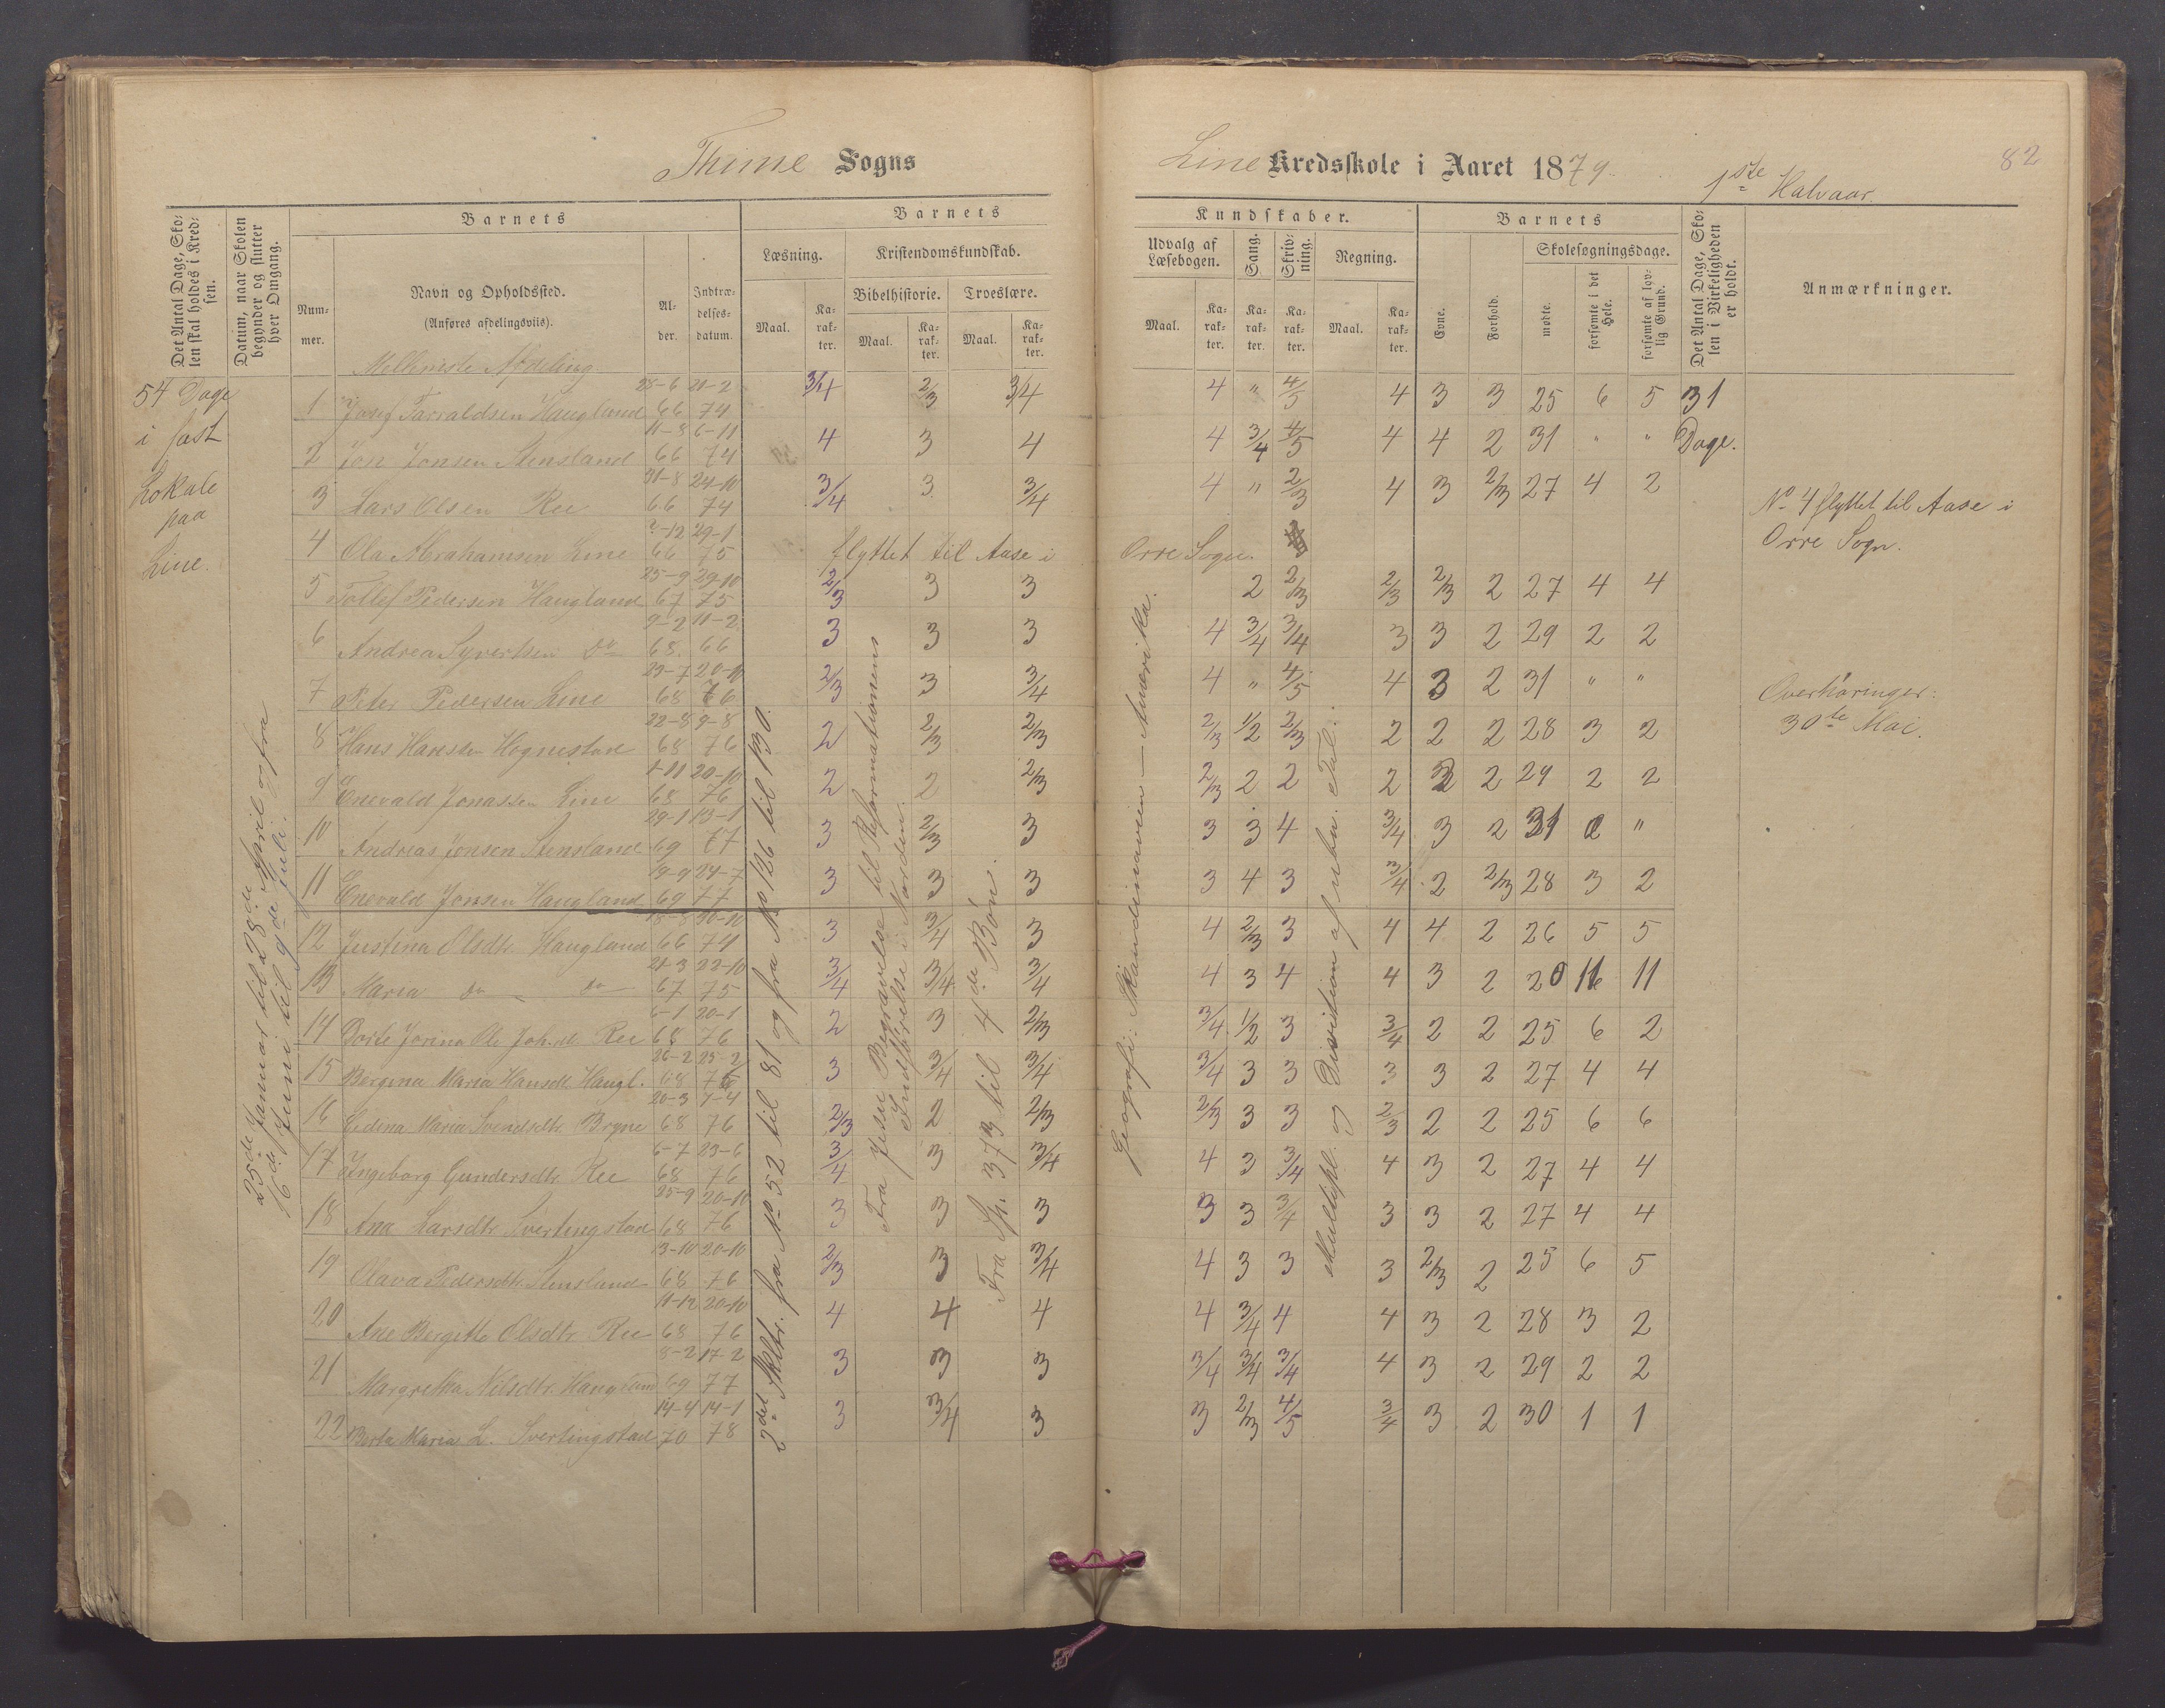 Thime Sogns
Line Kredsskole i Aaret 1879.
1ste Halvaar.
82
Det Antal Dage, Skolen skal holdes i Kredsen.
Datum, naar Skolen begynder og slutter hver Omgang.
Barnets
Barnets
Kundskaber.
Barnets
Det Antal Dage, Skolen i Virkeligheden er holdt.
Anmærkninger.
Nummer.
Navn og Opholdssted.
(Anføres afdelingsviis).
Alder.
Indtrædelsesdatum.
Læsning.
Kristendomskundskab.
Bibelhistorie.
Troeslære.
Maal.
Karakter.
Maal.
Karakter.
Maal.
Karakter.
Udvalg af Læsebogen.
Sang.
Skrivning.
Regning.
Maal.
Karakter.
Karakter.
Karakter.
Maal.
Karakter.
Evne.
Forhold.
Skolesøgningsdage.
mødte.
forsømte i det Hele.
forsømte af lovlig Grund.
Mellemste Afdeling
54 Dage
i fast
Lokale
paa
Line.
25de Januar til 28de April og fra
16de Juni til 9de Juli.
2det Skltr. fra No 52 til 81 og fra No 126 til 130.
Fra Jesu Begravelse til Reformationens
Indførelse i Norden.
Fra Sp. 373 til 4de Bøn.
Geografi: Skandinavien — Amerika.
Multipl. og Division af ueba. Tal.
1 Josef Tarraldsen Haugland 28-6 66 21-2 74 3/4 2/3 3/4 4 " 4/5 4 3 3 25 6 5 31
2 Jon Jonsen Stensland 11-8 66 6-11 74 4 3 4 4 3/4 4/5 4 4 2 31 " " Dage.
3 Lars Olsen Ree 31-8 66 24-10 74 3/4 3 3/4 4 " 2/3 4 3 2/3 27 4 2
4 Ola Abrahamsen Line 66 29-1 75 flyttet til Aase i Orre Sogn.
No 4 flyttet til Aase i
Orre Sogn.
5 Tollef Pedersen Haugland 25-9 67 29-10 75 2/3 3 3 2 2/3 2/3 2/3 2 27 4 4
6 Andrea Syvertsen do 9-2 68 11-2 66 3 3 3 4 3/4 3/4 3 3 2 29 2 2
7 Peter Pedersen Line 29-7 68 20-10 76 2/3 3 3/4 4 " 4/5 4 3 2 31 " "
Overhøringer:
30te Mai.
8 Hans Hansen Hognestad 22-8 68 9-8 76 2 2/3 2/3 2/3 1/2 2/3 2 2 2 28 3 2
9 Enevald Jonassen Line 1-11 68 20-10 76 2 2 2/3 2/3 2 2 2 3 2 29 2 2
10 Andreas Jonsen Stensland 29-1 69 13-1 77 3 2/3 3 3 3 4 3/4 3 2 31 "
11 Enevald Jonsen Haugland 19-9 69 24-7 77 3 3 3 3 4 3 3/4 2 2/3 28 3 2
12 Justina Olsdtr Haugland 18-8 66 30-10 74 3 3/4 3 4 2/3 3 4 4 2 26 5 5
13 Maria do do 21-3 67 22-10 75 3/4 3/4 3/4 4 3 4 4 3 2 20 11 11
14 Dorte Jorina Ole Joh.dt Ree 6-1 68 20-1 76 2 3 2/3 3/4 1/2 3 3/4 2 2 25 6 2
15 Bergina Maria Hansdt Haugl. 26-2 68 25-2 76 3 3/4 3/4 3/4 3 3 3 3 2 27 4 4
16 Ledina Maria Svendsdtr Bryne 20-3 68 7-4 76 2/3 2 2/3 2/3 3 3 2/3 2 2 25 6 6
17 Ingeborg Gundersdtr. Ree 6-7 68 29-6 76 3/4 3 3/4 4 3 3/4 4 3 2 27 4 4
18 Ana Larsdtr Svertingstad 25-9 68 20-10 76 3 3 3 3 3 3/4 3 3 2 27 4 4
19 Olava Pedersdtr Stensland 13-10 68 20-10 76 2/3 3 3/4 4 3 3 3 2/3 2 25 6 5
20 Ane Bergitte Olsdtr. Ree 11-12 68 20-10 76 4 4 4 4 3/4 4 4 3 2 28 3 2
21 Margretha Nilsdtr. Haugland 8-2 69 17-2 77 3 3 3 3/4 3/4 3/4 4 3 2 29 2 2
22 Berta Maria L. Svertingstad 14-4 70 14-1 78 3 3/4 3 3 2/3 4/5 3/4 3 2 30 1 1